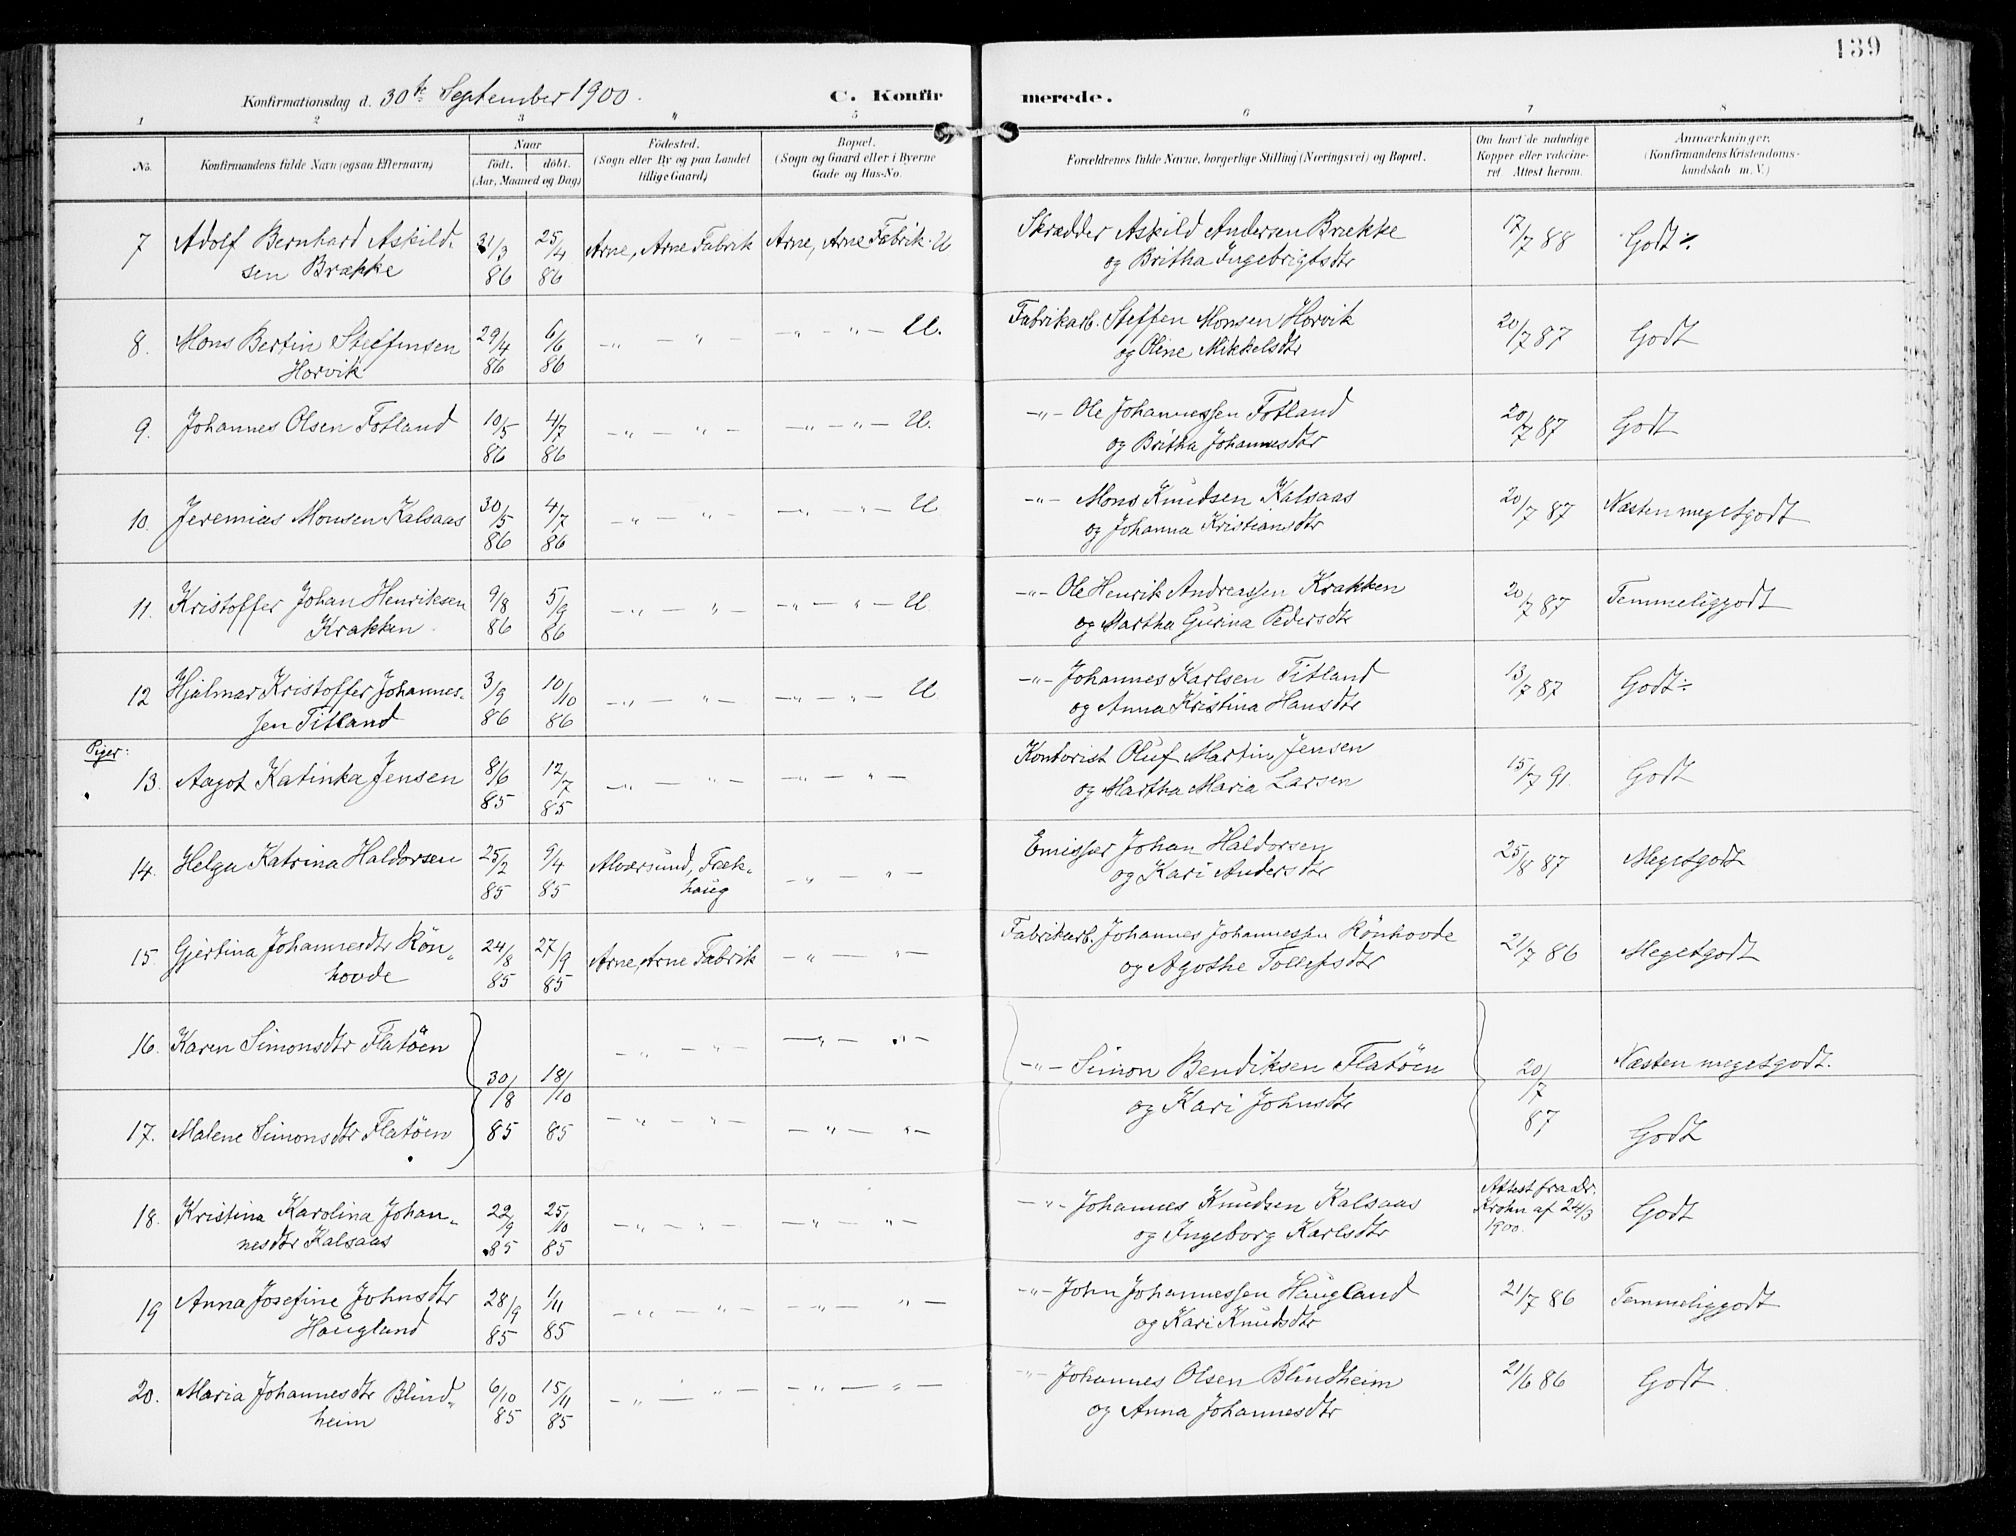 139
Konfirmationsdag d. 30te September 1900.
C. Konfir merede.
1 2 3 4 5 6 7 8
No. Konfirmandens fulde Navn (ogsaa Efternavn) Naar födt. döbt. (Aar, Maaned og Dag) Födested. (Sogn eller By og paa Landet tillige Gaard) Bopæl. (Sogn og Gaard eller i Byerne Gade og Hus-No. Forældrenes fulde Navne, borgerlige Stilling (Næringsvei) og Bopæl. Om havt de naturlige Kopper eller vakcineret Attest herom. Anmærkninger. (Konfirmandens Kristendomskundskab m. V.)
7 Adolf Bernhard Askild- 31/3 25/4 Arne, Arne Fabrik Arne, Arne Fabrik U Skrædder Askild Andersen Brække 17/7 88 Godt ÷
sen Brække 86 86 og Britha Ingebrigtsdtr
8. Mons Bertin Steffensen 29/4 6/6 —„— „— —„— „— U. Fabrikarb. Steffen Monsen Horvik 20/7 87 Godt
Horvik 86 86 og Oline Mikkelsdtr
9. Johannes Olsen Fotland 10/5 4/7 —„— „— —„— „— U. —„— Ole Johannessen Fotland 20/7 87 Godt
86 86 og Britha Johannesdtr
10. Jeremias Monsen Kalsaas 30/5 4/7 —„— „— —„— „— U —„— Mons Knudsen Kalsaas 20/7 87 Næsten megetgodt
86 86 og Johanna Kristiansdtr
11. Kristoffer Johan Henriksen 9/8 5/9 —„— „— —„— „— U. —„— Ole Henrik Andreassen Krakken 20/7 87 Temmeliggodt
Krakken 86 86 og Martha Gurina Pedersdtr
12 Hjalmar Kristoffer Johannes- 3/9 10/10 —„— „— —„— „— U —„— Johannes Karlsen Titland 13/7 87 Godt ÷
sen Titland 86 86 og Anna Kristina Hansdtr
Piger:
13. Aagot Katinka Jensen 8/6 12/7 —„— „— —„— „— Kontorist Oluf Martin Jensen 15/7 91. Godt
85 85 og Martha Maria Larsen
14. Helga Katrina Haldorsen 25/2 9/4 Alversund, Fræk- —„— „— Emissær Johan Haldorsen 25/8 87 Megetgodt
85 85 haug og Kari Andersdtr
15. Gjertina Johannesdtr Rön- 24/8 27/9 Arne, Arne Fabrik —„— „— Fabrikarb. Johannes Johannessen Rönhovde 21/7 86 Megetgodt
hovde 85 85 og Agothe Tollefsdtr
16. Karen Simonsdtr Flatöen —„— „— —„— „— —„— Simon Bendiksen Flatöen Næsten megetgodt.
30/8 18/10 og Kari Johnsdtr 20/7
17. Malene Simonsdtr Flatöen 85 85 —„— „— —„— „— 87 Godt
18. Kristina Karolina Johan- 22/9 25/10 —„— „— —„— „— —„— Johannes Knudsen Kalsaas Attest fra Dr. Krohn af 24/3 1900. Godt
nesdtr Kalsaas 85 85 og Ingeborg Karlsdtr
19 Anna Josefine Johnsdtr 28/9 1/11 —„— „— —„— „— —„— John Johannessen Haugland 21/7 86 Temmeliggodt
Haugland 85 85 og Kari Knudsdtr
20. Maria Johannesdtr Blind- 6/10 15/11 —„— „— —„— „— —„— Johannes Olsen Blindheim 21/6 86 Godt
heim 85 85 og Anna Johannesdtr